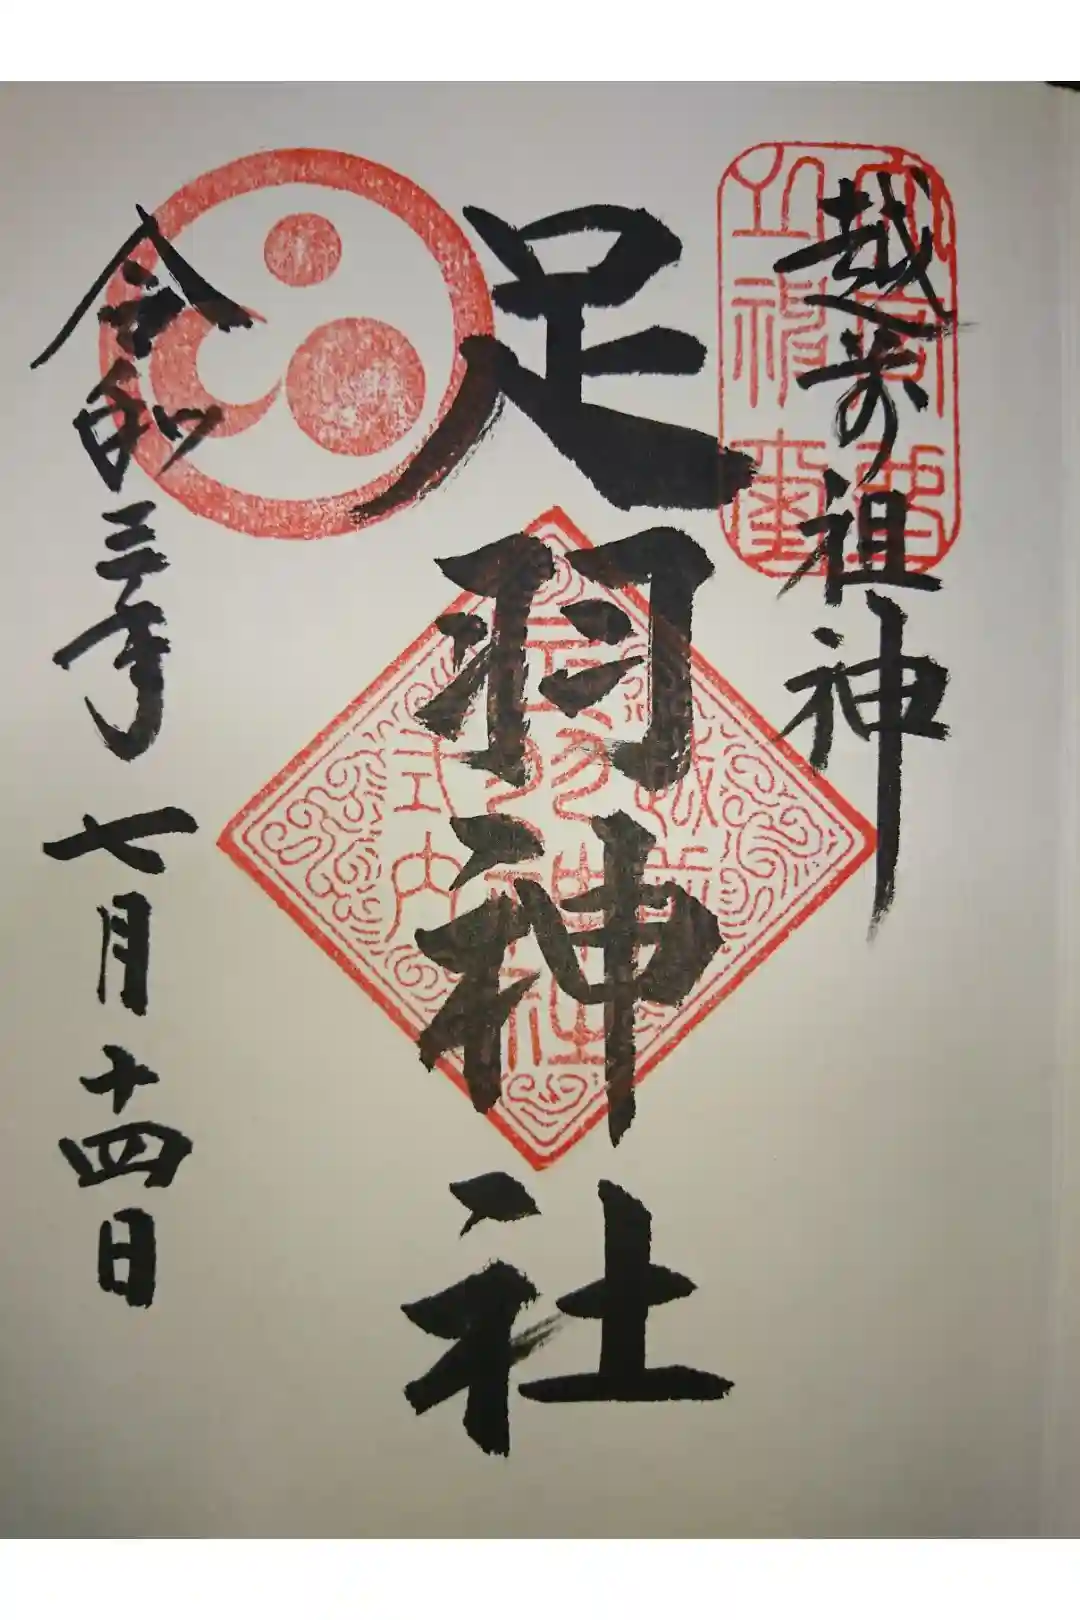 越前の祖神
足羽神社
越前
足羽神社
式内
令和三年
七月十四日